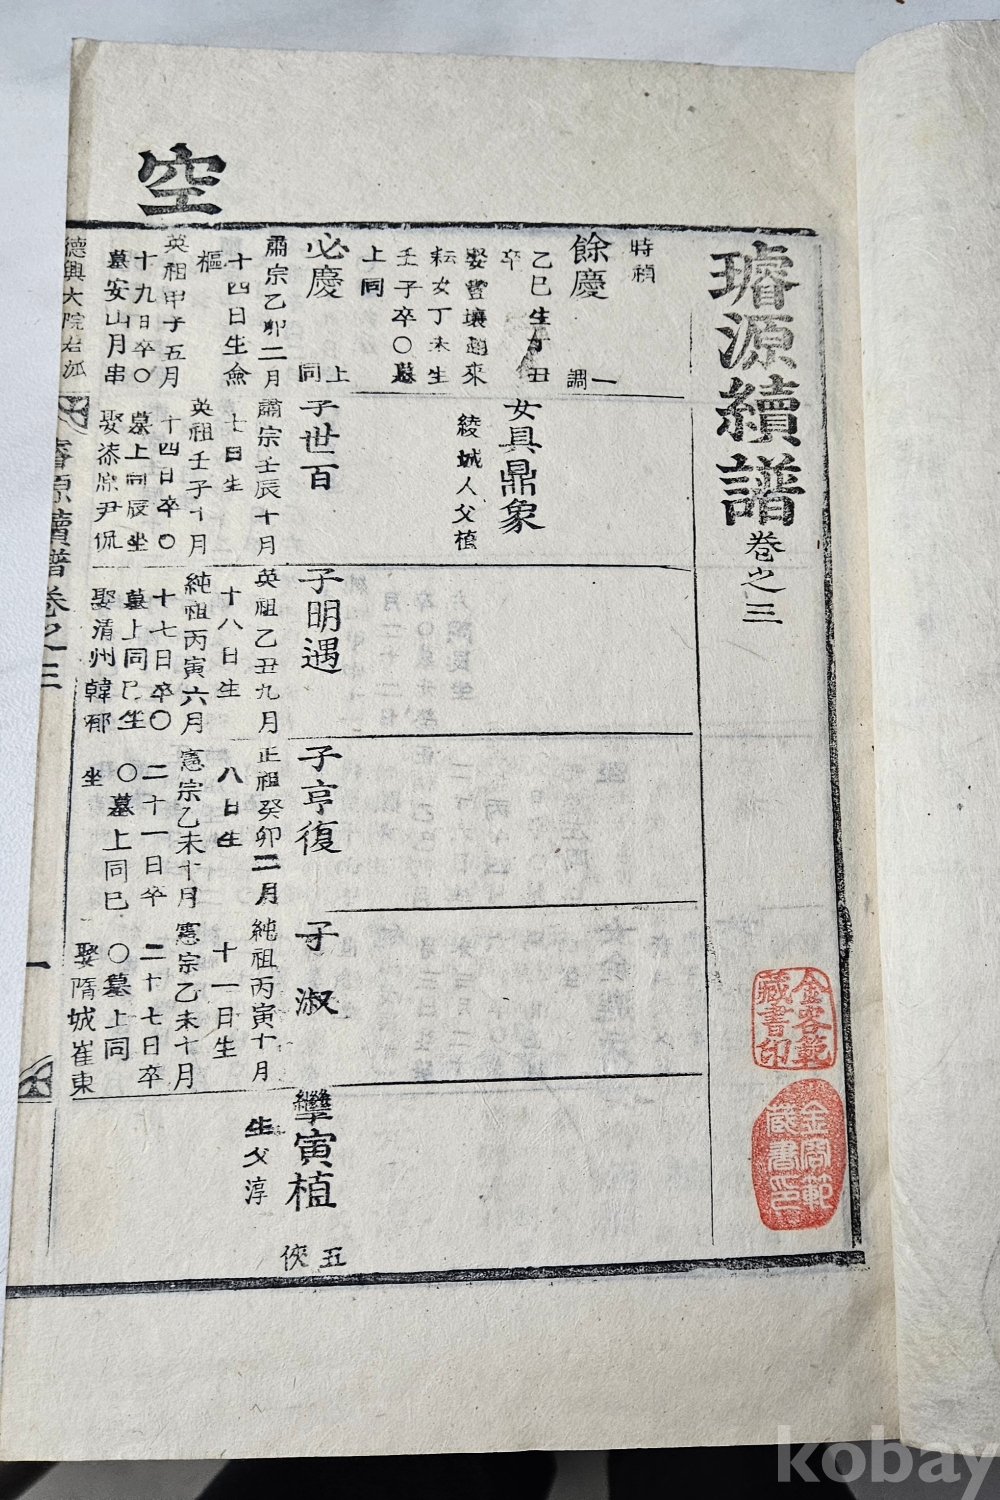 空
璿源續譜 卷之三
金容範
藏書印
金容範
藏書印
時禎
餘慶
一
調
乙巳生 丑
卒
娶豊壤趙來
耘女丁未生
壬子卒〇墓
上同
女具鼎象
綾城人父楨
必慶
上
同
肅宗乙卯二月
十四日生僉
樞
英祖甲子五月
十九日卒〇
墓安山月串
子世百
肅宗壬辰十月
七日生
英祖壬子十月
十四日卒〇
墓上同辰坐
娶漆原尹侃
子明遇
英祖乙丑九月
十八日生
純祖丙寅六月
十七日卒〇
墓上同巳坐
娶清州韓郁
子亨復
正祖癸卯二月
八日生
憲宗乙未十月
二十一日卒
〇墓上同巳
坐
子淑
純祖丙寅十月
十一日生
憲宗乙未十月
二十七日卒
〇墓上同
娶隋城崔東
寅植
生父淳
五
俠
德興大院君派
璿源續譜卷之三
一
kobay